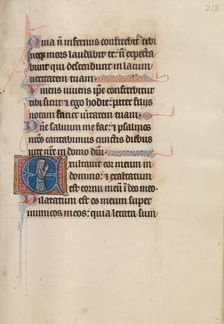 213
Quia nõ infernus confitebit̃ tibi
neq̃ mors laudabit te: nõ expecta
bunt qui descendunt in lacum
ueritatem tuam.
Uiuens uiuens ip̃e confitebitur
tibi sicut & ego hodie: pater filiis
notam faciet ueritatem tuam
Dñe saluum me fac: & psalmos
nr̃os cantabimus cunctis diebus
uite nr̃e in domo dñi.
Exultauit cor meum in
domino: & exaltatum
est cornu meum ĩ deo meo
Dilatatum est os meum super
inimicos meos: quia letata sum